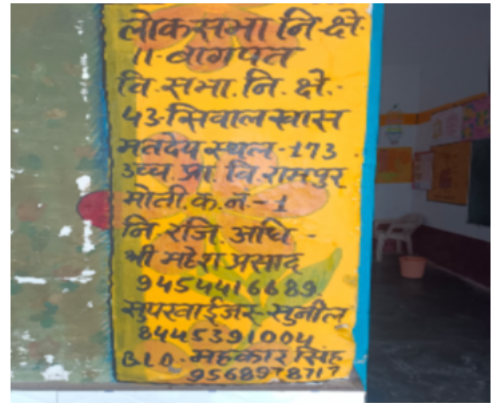 लोकसभा नि.क्षे.
11-बागपत
वि.सभा.नि.क्षे.-
43-सिवालखास
मतदेय स्थल-173
उच्च.प्रा.वि.रामपुर
मोती.क.नं-1
नि.रजि.अधि-
श्री महेश प्रसाद
9454416689
सुपरवाईजर-सुनील
8445391004
B.L.O-महकार सिंह
9568978717